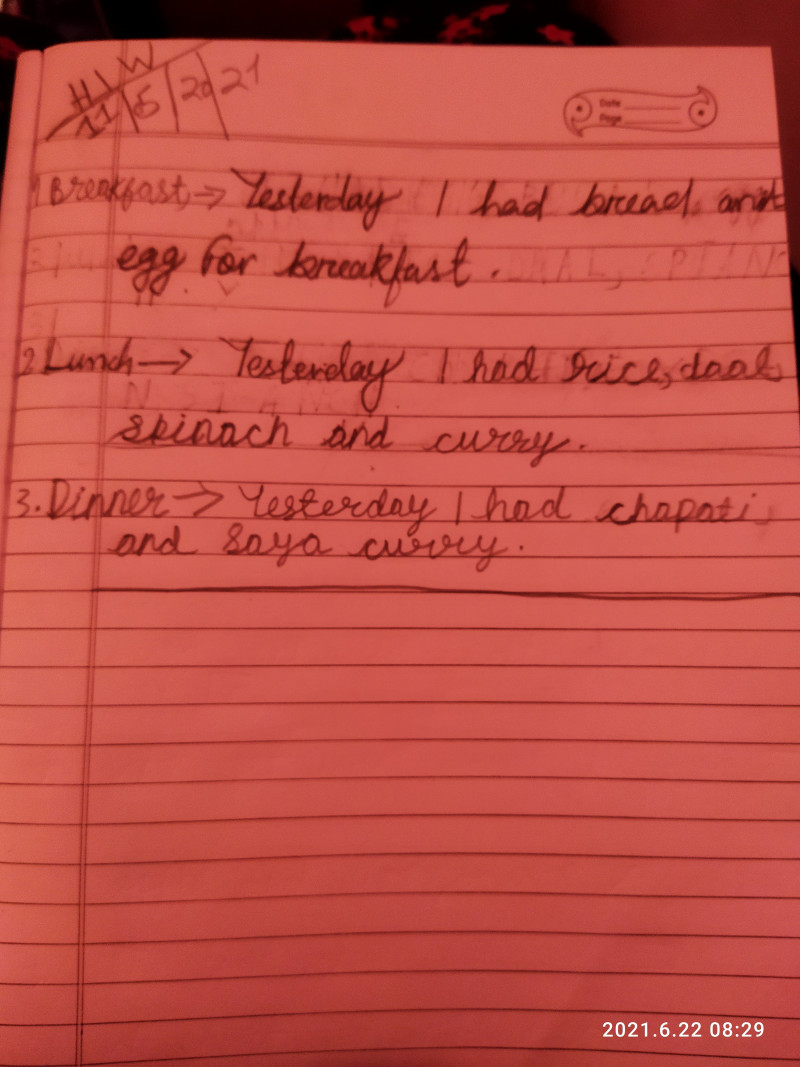 H/W
11/5/2021
Date
Page
1 Breakfast, → Yesterday I had bread and
egg for breakfast.
2 Lunch → Yesterday I had rice, daal,
spinach and curry.
3. Dinner → Yesterday I had chapati,
and soya curry.
2021.6.22 08:29